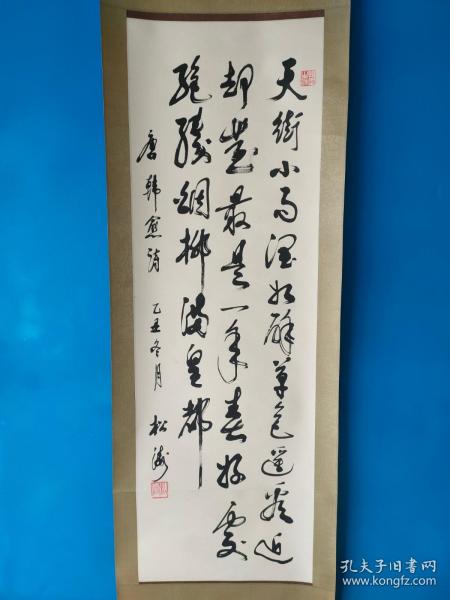 天街小雨润如酥草色遥看近
却无最是一年春好处
绝胜烟柳满皇都
唐韩愈诗 乙丑冬月 松涛
孔夫子旧书网
www.kongfz.com